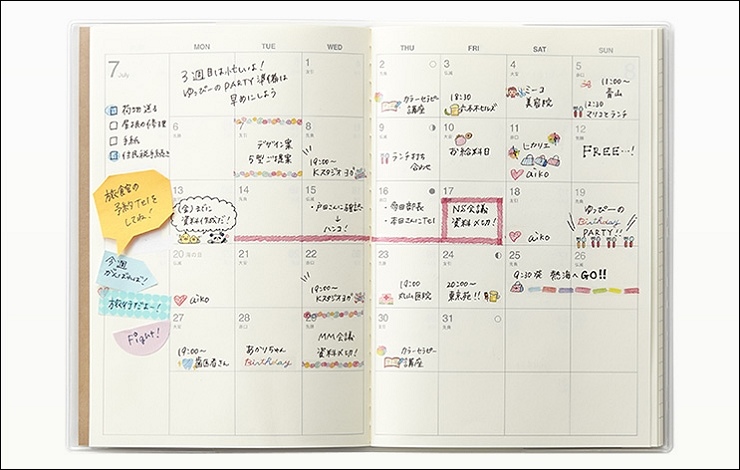 7
July
MON
TUE
WED
THU
FRI
SAT
SUN
3週目は忙しいよ!
ゆっぴーのPARTY準備は
早めにしよう
荷物送る
屋根の修理
手紙
住民税手続き
1
2
カラーセラピー
講座
3
18:30
六本木セルズ
4
ミーコ
美容院
5
11:00~
青山
12:30
マリコとランチ
6
7
デザイン案
5型ご提案
8
19:00~
Kスタジオヨガ
9
ランチ打ち
合わせ
10
お給料日
11
ヒカリエ
aiko
12
FREE…!
旅館の
予約Telを
してね!
13
(金)までに
資料作成だ!
14
15
・戸田さんに確認
↓
ハンコ!
16
・今田部長
・本田さんにTel
17
NS会議
資料〆切!
18
aiko
19
ゆっぴーの
Birthday
PARTY!!
今週
がんばれば!
旅行だよー!
Fight!
20
海の日
aiko
21
22
19:00~
Kスタジオヨガ
23
19:00~
丸山医院
24
20:00~
東京苑!!
25
9:30発 熱海へGO!!
26
27
19:00~
歯医者さん
28
あかりちゃん
Birthday
29
MM会議
資料〆切!
30
カラーセラピー
講座
31